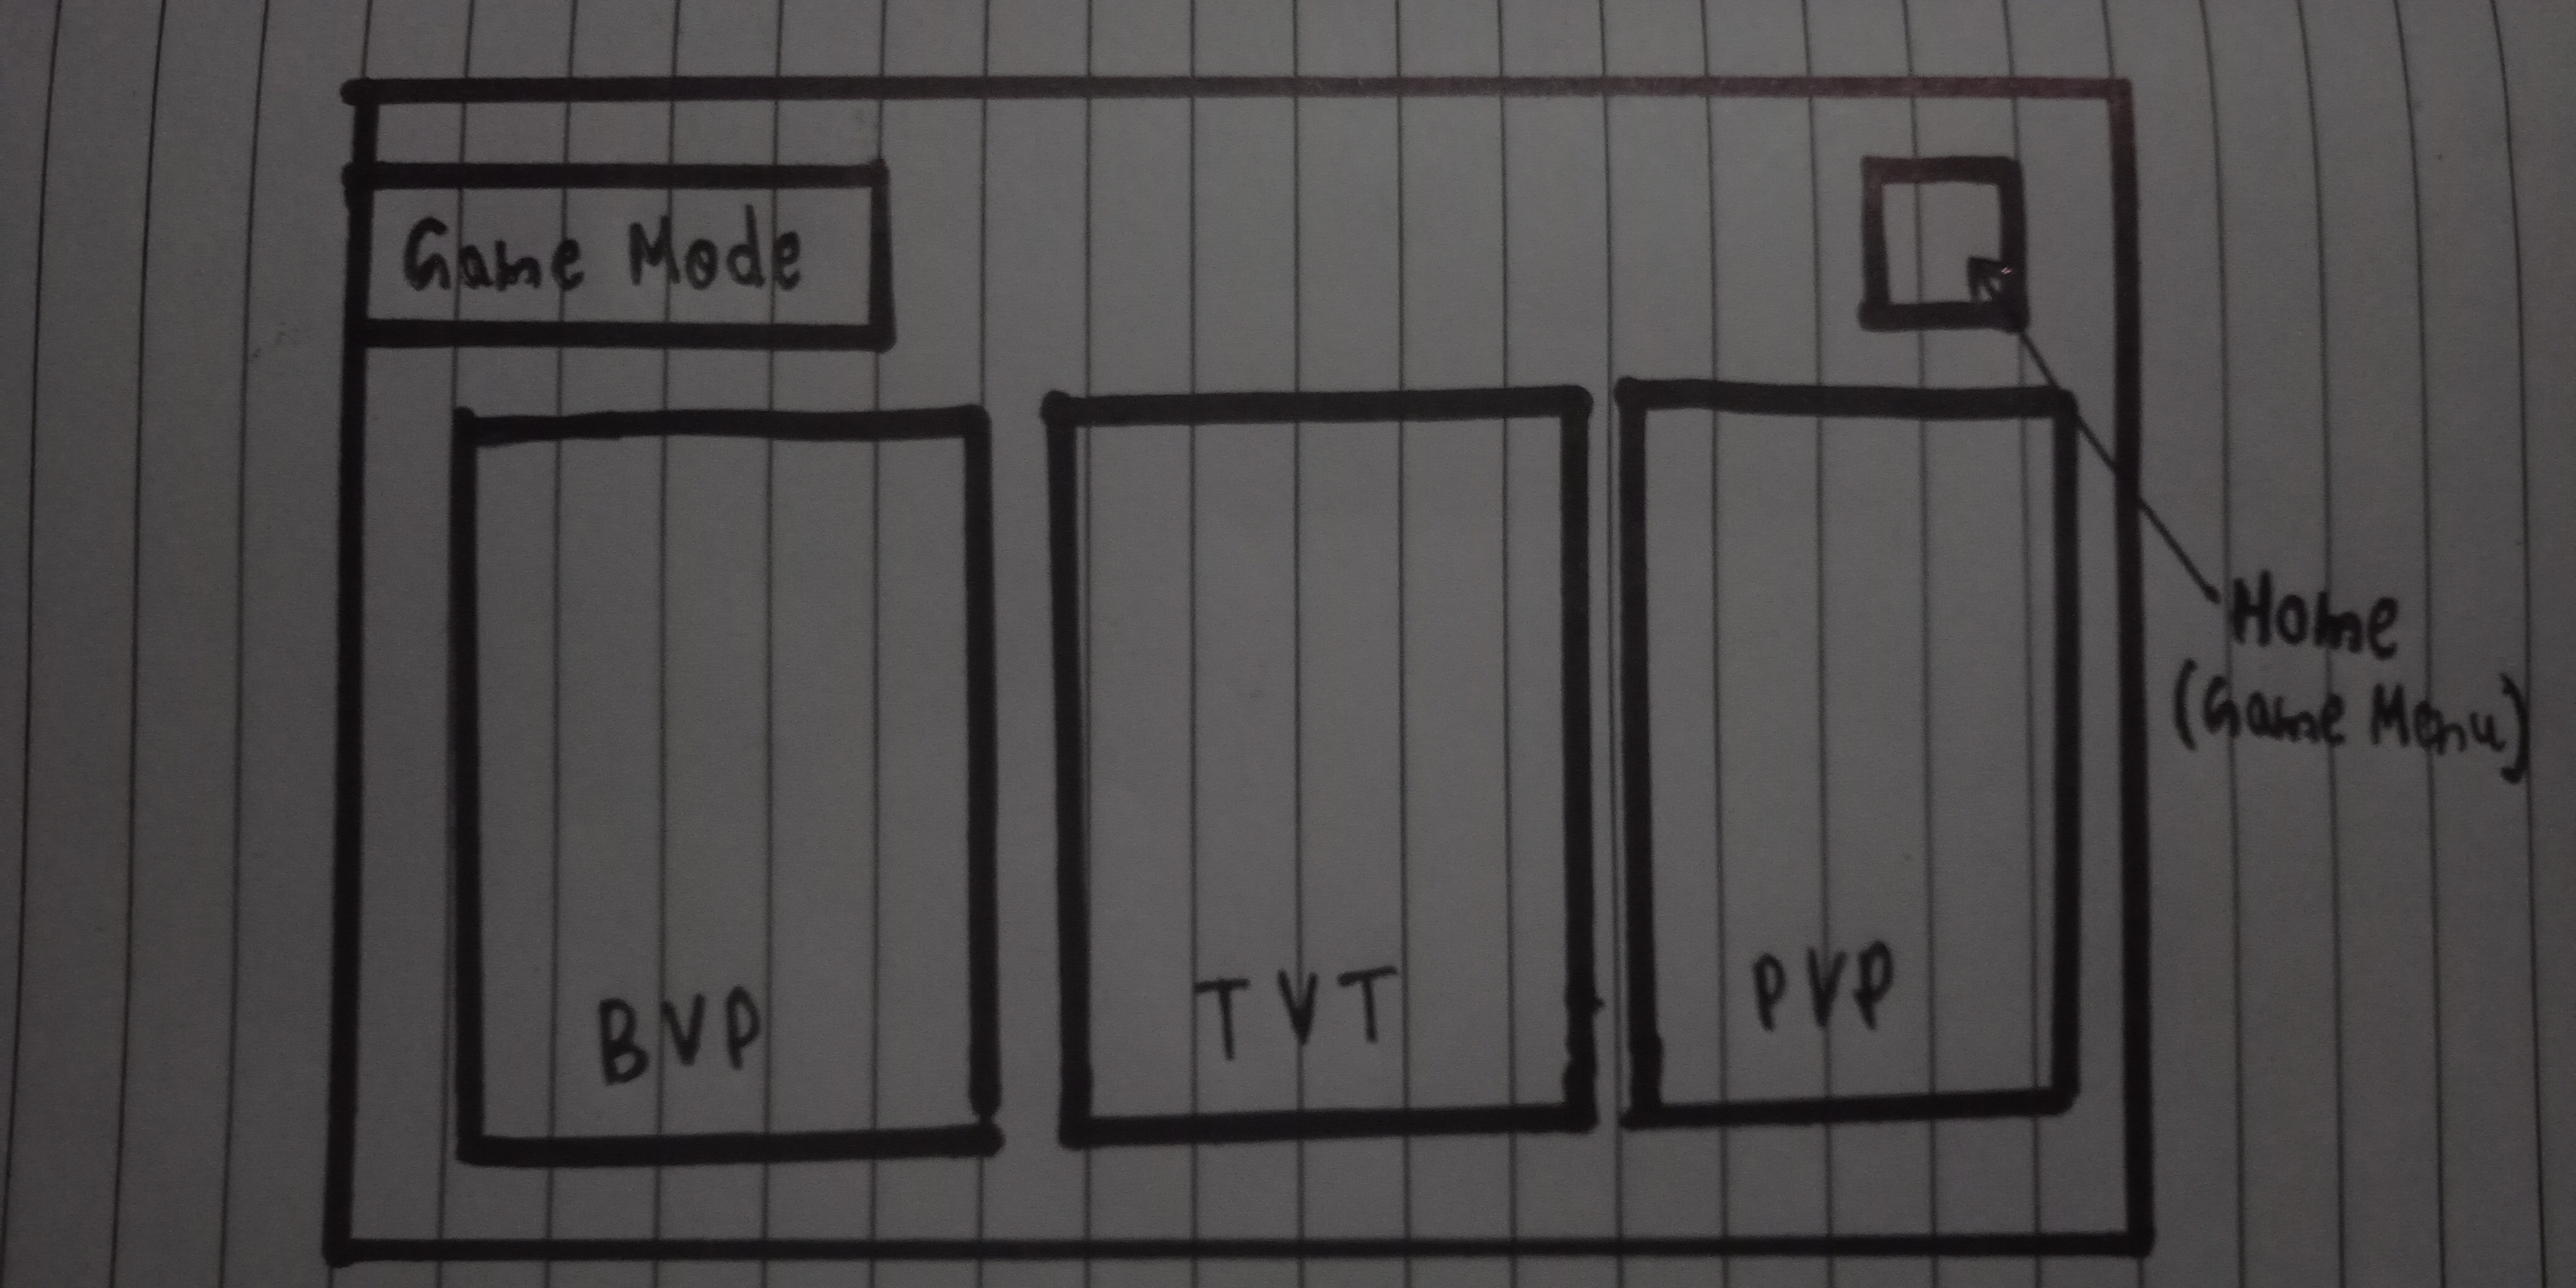 Game Mode
Home
(Game Menu)
BVP
TVT
PVP